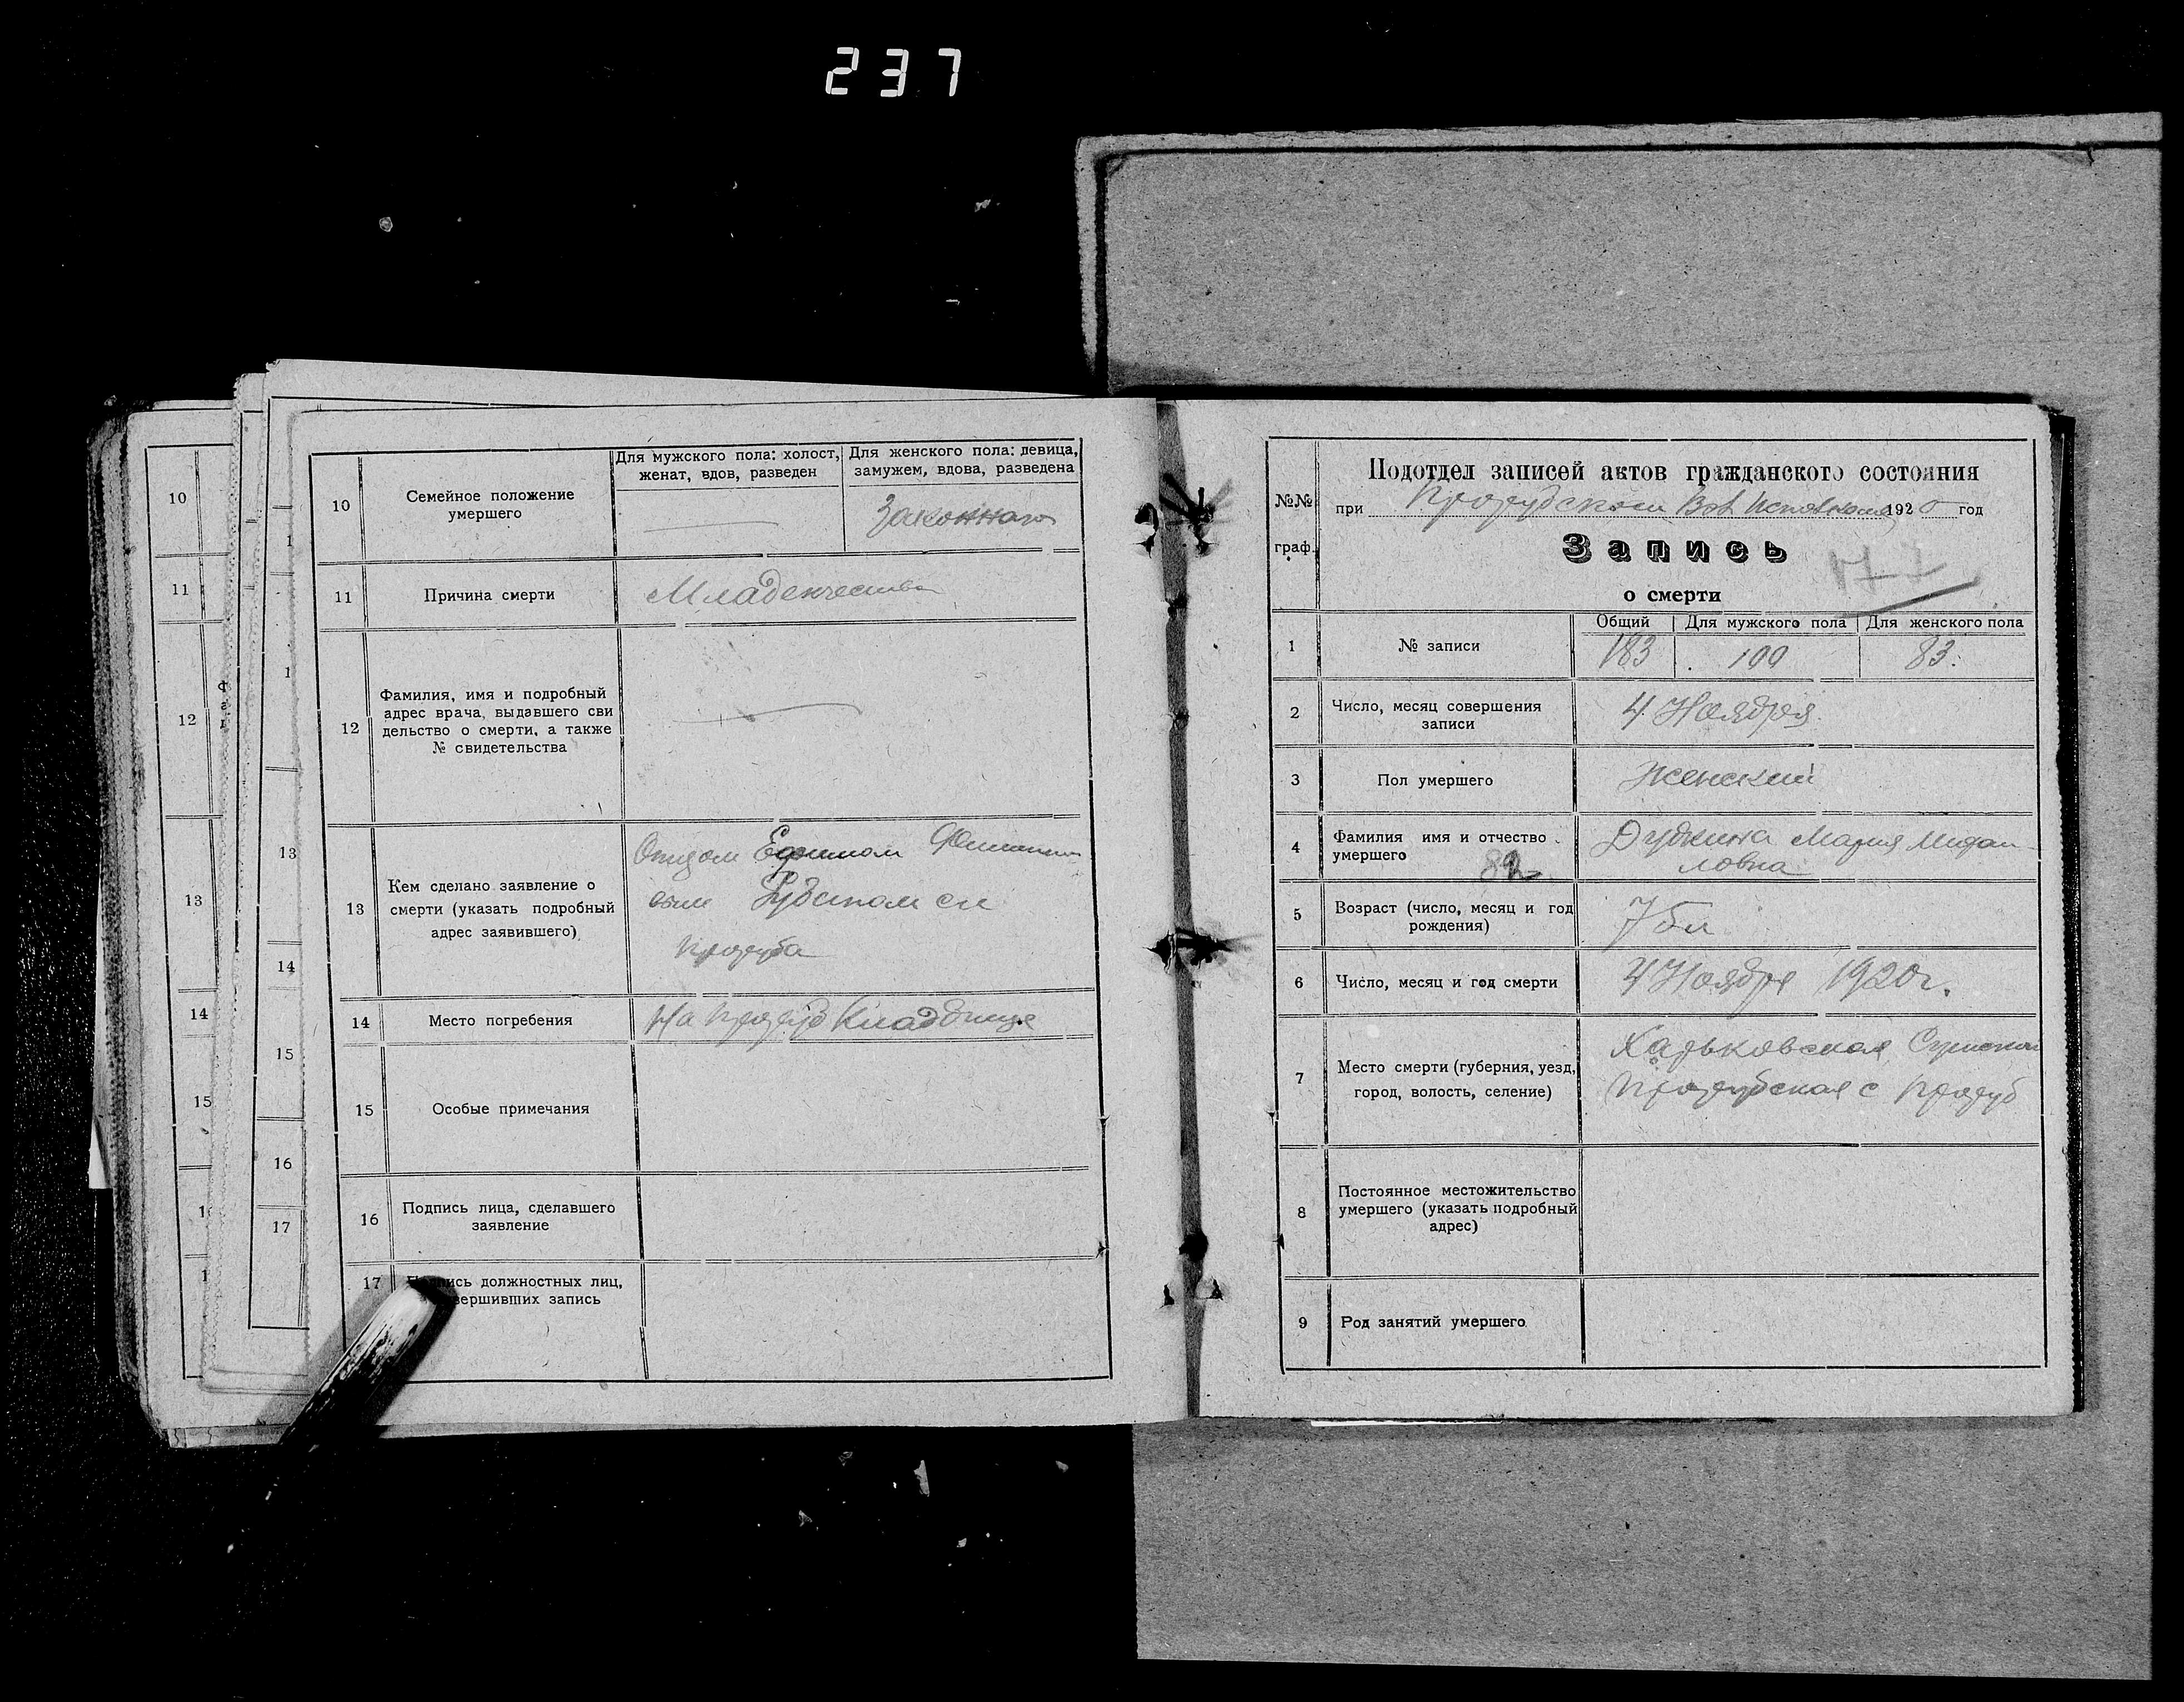 237
10
11
12
13
14
15
10
Семейное положение
умершего
Для мужского пола: холост,
женат, вдов, разведен
Для женского пола: девица,
замужем, вдова, разведена
11
Причина смерти
Младенчества
12
Фамилия, имя и подробный
адрес врача, выдавшего сви
дельство о смерти, а также
№ свидетельства
13
Кем сделано заявление о
смерти (указать подробный
адрес заявившего)
Отцом
14
Место погребения
На
15
Особые примечания
16
Подпись лица, сделавшего
заявление
17
должностных лиц,
запись
13
14
15
16
17
№№
граф.
Подотдел записей актов гражданского состояния
при 1920 год
Запись
77
о смерти
1
№ записи
Общий
Для мужского пола
Для женского пола
183
100
83.
2
Число, месяц совершения
записи
4 Ноября
3
Пол умершего
Женский
4
Фамилия имя и отчество
умершего
82
Мария Михаи
ловна
5
Возраст (число, месяц и год
рождения)
6
Число, месяц и год смерти
4 Ноября 1920 г.
7
Место смерти (губерния, уезд,
город, волость, селение)
Харьковская
8
Постоянное местожительство
умершего (указать подробный
адрес)
9
Род занятий умершего